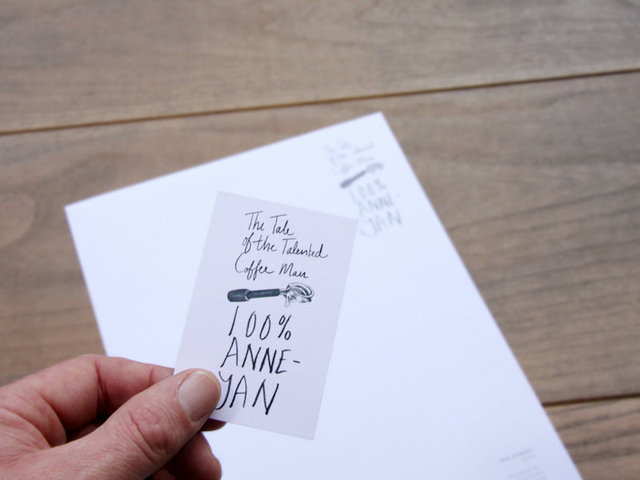 The Tale
of the Talented
Coffee Man
100%
ANNE-
YAN
The Tale
of the Talented
Coffee Man
100%
ANNE-
YAN